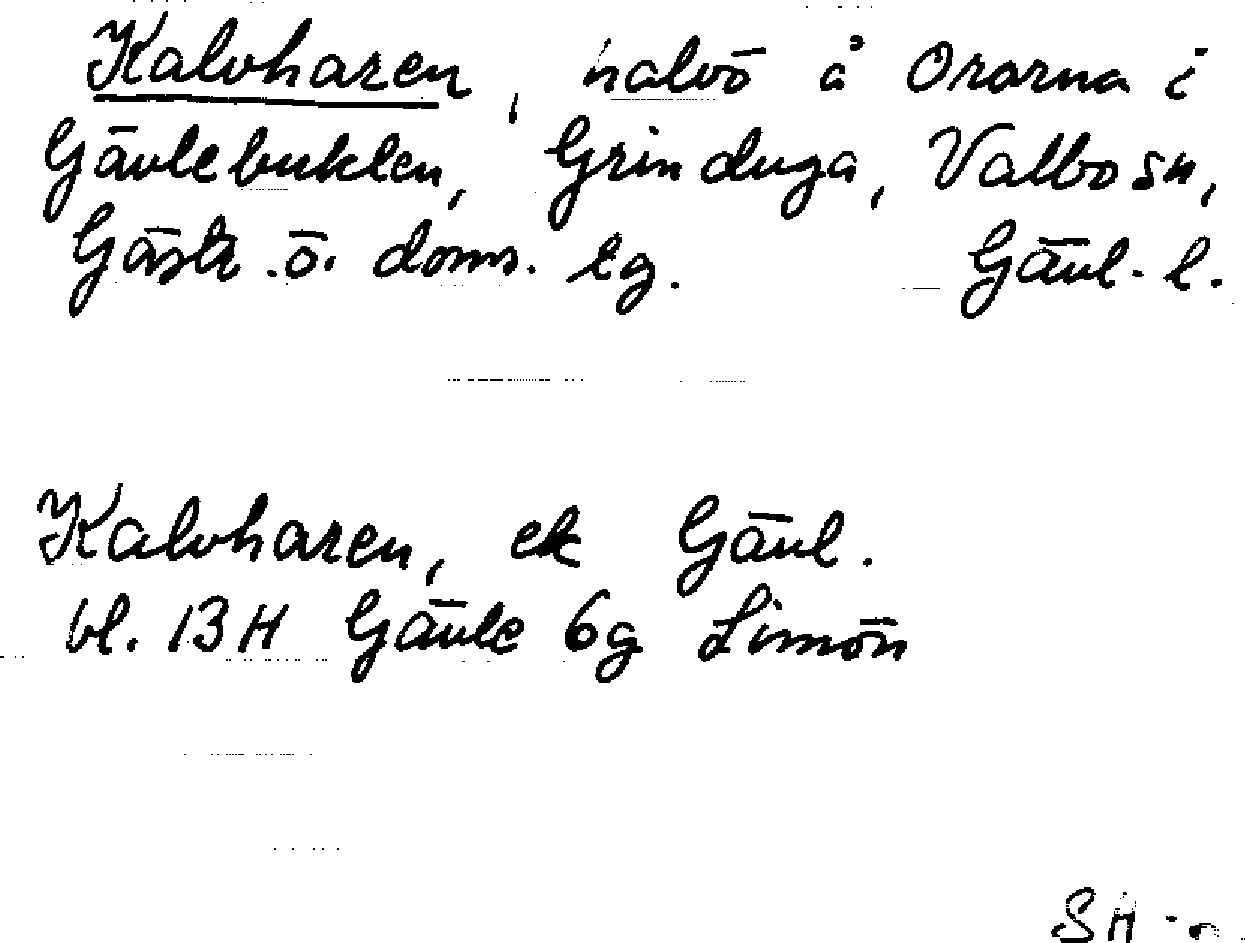 Kalvharen, halvö å Orarna i
Gävlebukten, Grinduga, Valbo sn,
Gästr. ö. doms. tg. Gävl. l.
Kalvharen, ek Gävl.
bl. 13H Gävle 6g Limön
SH